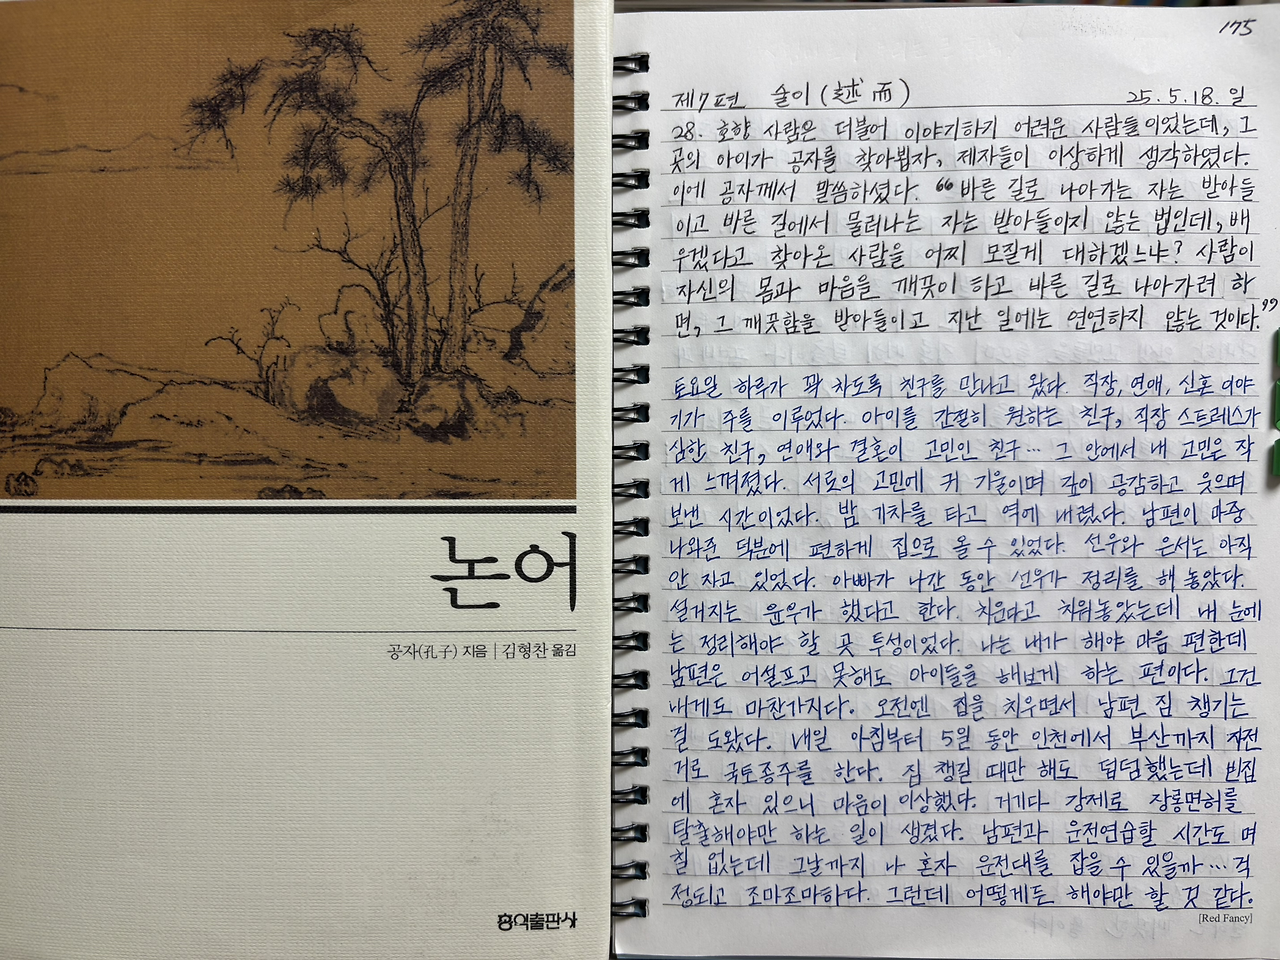 논어
공자(孔子) 지음 | 김형찬 옮김
홍익출판사
175
제7편 술이(述而) 25.5.18. 일
28. 호향 사람은 더불어 이야기하기 어려운 사람들이었는데, 그
곳의 아이가 공자를 찾아뵙자, 제자들이 이상하게 생각하였다.
이에 공자께서 말씀하셨다. "바른 길로 나아가는 자는 받아들
이고 바른 길에서 물러나는 자는 받아들이지 않는 법인데, 배
우겠다고 찾아온 사람을 어찌 모질게 대하겠느냐? 사람이
자신의 몸과 마음을 깨끗이 하고 바른 길로 나아가려 하
면, 그 깨끗함을 받아들이고 지난 일에는 연연하지 않는 것이다."
토요일 하루가 꽉 차도록 친구를 만나고 왔다. 직장, 연애, 신혼 이야
기가 주를 이루었다. 아이를 간절히 원하는 친구, 직장 스트레스가
심한 친구, 연애와 결혼이 고민인 친구… 그 안에서 내 고민은 작
게 느껴졌다. 서로의 고민에 귀 기울이며 깊이 공감하고 웃으며
보낸 시간이었다. 밤 기차를 타고 역에 내렸다. 남편이 마중
나와준 덕분에 편하게 집으로 올 수 있었다. 선우와 은서는 아직
안 자고 있었다. 아빠가 나간 동안 선우가 정리를 해 놓았다.
설거지는 윤우가 했다고 한다. 치운다고 치워놓았는데 내 눈에
는 정리해야 할 곳 투성이었다. 나는 내가 해야 마음 편한데
남편은 어설프고 못해도 아이들을 해보게 하는 편이다. 그건
내게도 마찬가지다. 오전엔 집을 치우면서 남편 짐 챙기는
걸 도왔다. 내일 아침부터 5일 동안 인천에서 부산까지 자전
거로 국토종주를 한다. 짐 챙길 때만 해도 덤덤했는데 빈집
에 혼자 있으니 마음이 이상했다. 거기다 강제로 장롱면허를
탈출해야만 하는 일이 생겼다. 남편과 운전연습할 시간도 며
칠 없는데 그날까지 나 혼자 운전대를 잡을 수 있을까… 걱
정되고 조마조마하다. 그런데 어떻게든 해야만 할 것 같다.
[Red Fancy]